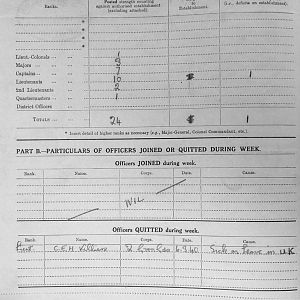 Ranks.
Posted strength counting against authorised establishment (excluding attached).
to Establishment.
(i.e., deficits on establishment).
Lieut.-Colonels ... 1
Majors ...
Captains ... 7 1
Lieutenants ... 10
2nd Lieutenants ... 2
Quartermasters ... 1
District Officers ...
TOTALS ... 24 1
* Insert detail of higher ranks as necessary (e.g., Major-General, Colonel Commandant, etc.).
PART B.—PARTICULARS OF OFFICERS JOINED OR QUITTED DURING WEEK.
Officers JOINED during week.
Rank. Name. Corps. Date. Cause.
NIL
Officers QUITTED during week.
Rank. Name. Corps. Date. Cause.
C.E.H. 6.9.40. Sick on leave in UK